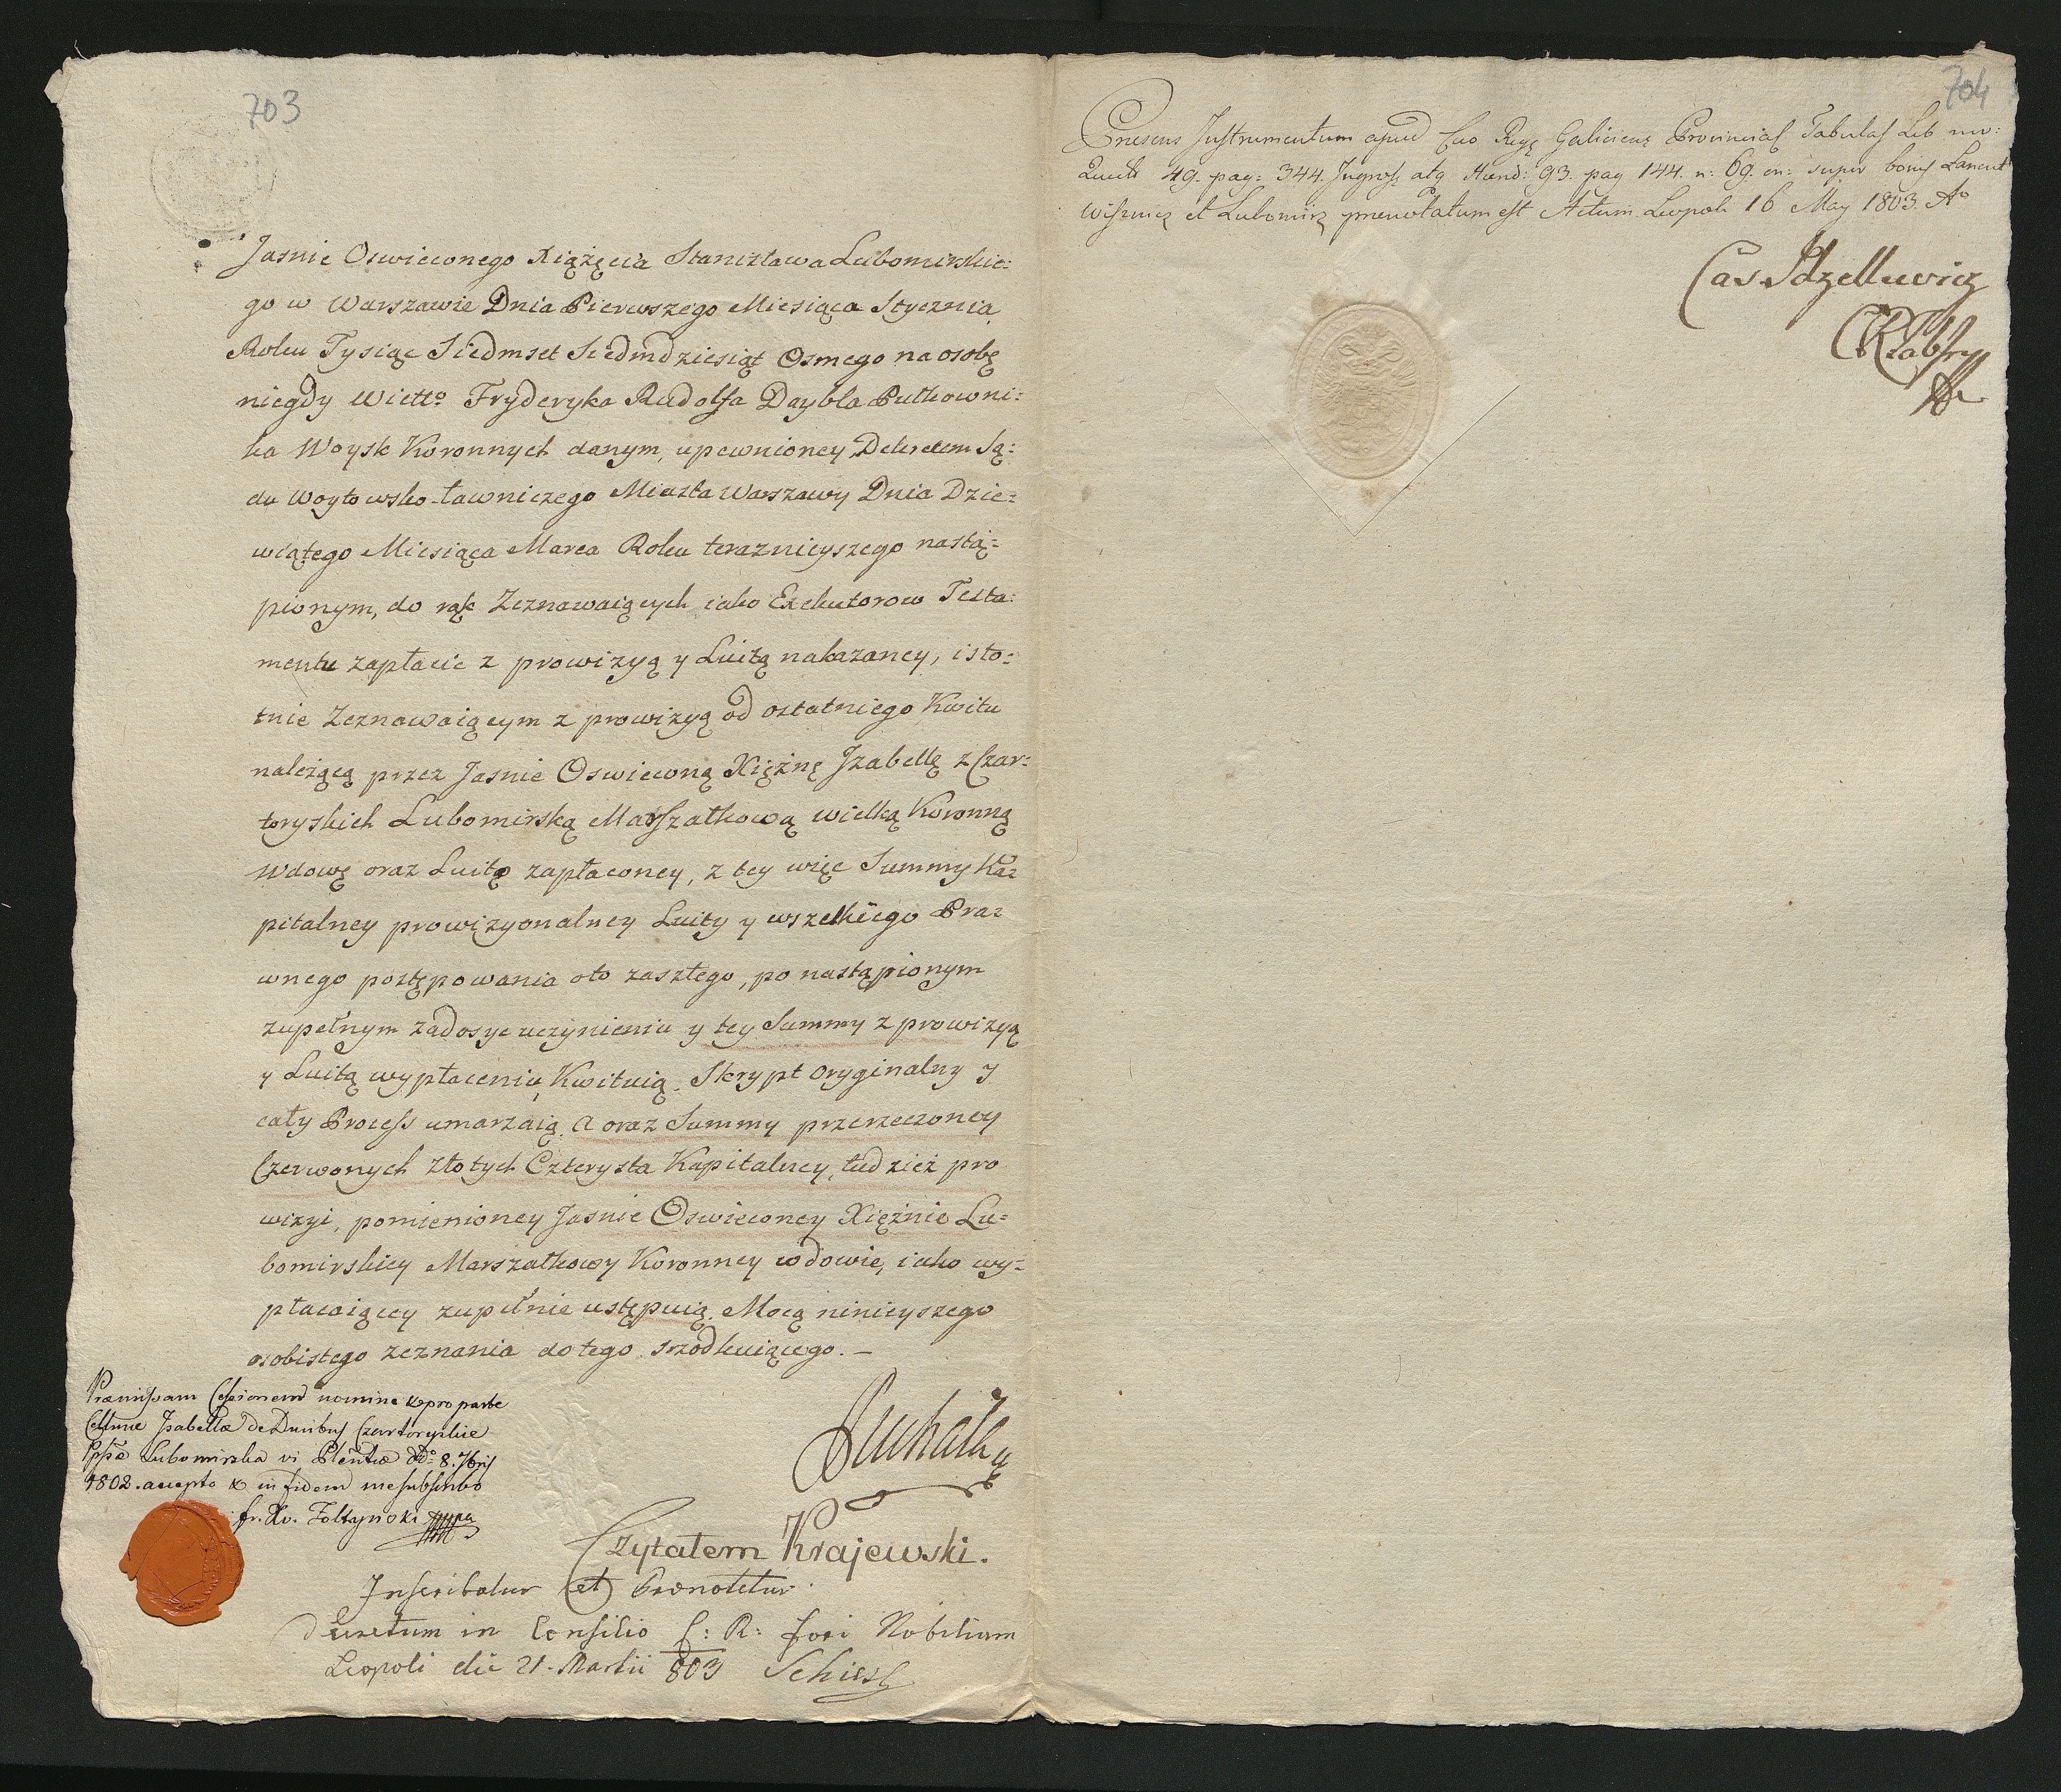 703
Jasnie Oswieconego Xiążęcia Stanisława Lubomirskie:
go w Warszawie Dnia Pierwszego Miesiąca Stycznia
Roku Tysiąc Siedmset Siedmdziesiąt Osmego na osobę
niegdy Wielło Fryderyka Rudolfa Daybla Pułkowni:
ka Woysk Koronnych danym, upewnioney, Dekretem Są:
du Woytowsko-Ławniczego Miasta Warszawy Dnia Dzie:
wiątego Miesiąca Marca Roku teraznieyszego nastą:
pionym, do rąk Zeznawaiących iako Exekutorow Testa:
mentu zapłacic z prowizyą y Luitą nakazaney, isto:
tnie Zeznawaiącym z prowizyą od ostatniego Kwitu
należącą przez Jasnie Oswieconą Xiężnę Jzabellę z Czar:
toryskich Lubomirską Marszałkową wielką Koronną
Wdowę oraz Luitą zapłaconey, z tey więc Summy Ka:
pitalney prowizyonalney Luity y wszelkiego Pra:
wnego postępowania oto zaszłego, po nastąpionym
zupełnym zadosyc uczynieniu y tey Summy z prowizyą
y Luitą wypłaceniu, Kwituią. Skrypt Oryginalny y
cały Process umarzaią. a oraz Summy przerzeczoney
Czerwonych Złotych Czterysta Kapitalney, tudzież pro
wizyi, pomienioney Jasnie Oswieconey Xiężnie Lu:
bomirskiey Marszałkowy Koronney wdowie, iako wy:
płacaiącey zupełnie ustępuią. Mocą ninieyszego
osobistego zeznania do tego srzodkuiącego. —
Præmissam Cessionem nomine & pro parte
Celsmæ Isabellæ de Ducibus Czartoryskie
Ppssæ Lubomirska vi Plentiæ ddo 8. 7bris
1802. accepto & in fidem me subscribo
Suchalki
Czytałem Krajewski.
Inscribatur et Prænotetur
Decretum in Consilio C: R: Fori Nobilium
Leopoli die 21. Martii 803 Schiesl
704
Præsens Instrumentum apud Cæs Regs Galiciens Provincial Tabulas Lib nov:
Quiett 49. pag: 344. Ingross atq Hæred: 93. pag 144. n: 69. on: super bonis Lancut
Wisznicz et Lubomirz prænotatum est Actum Leopoli 16 May 1803. Ao